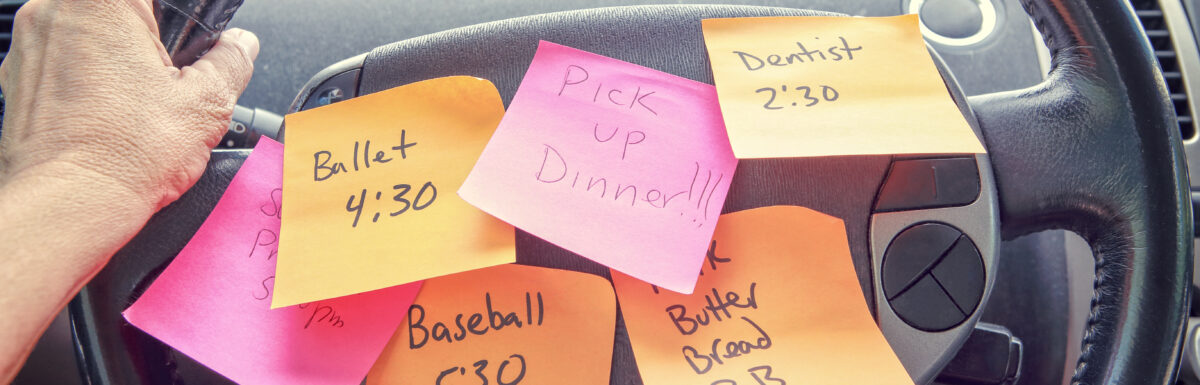 Dentist
2:30
Pick
up
Dinner!!!
Ballet
4:30
Baseball
5:30
Butter
Bread